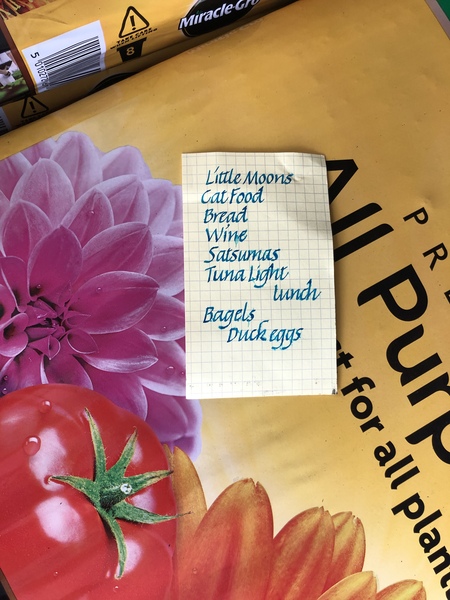 Miracle-Gro
8
Little Moons
Cat Food
Bread
Wine
Satsumas
Tuna Light
lunch
Bagels
Duck eggs
PRE
All Purp
t for all plant